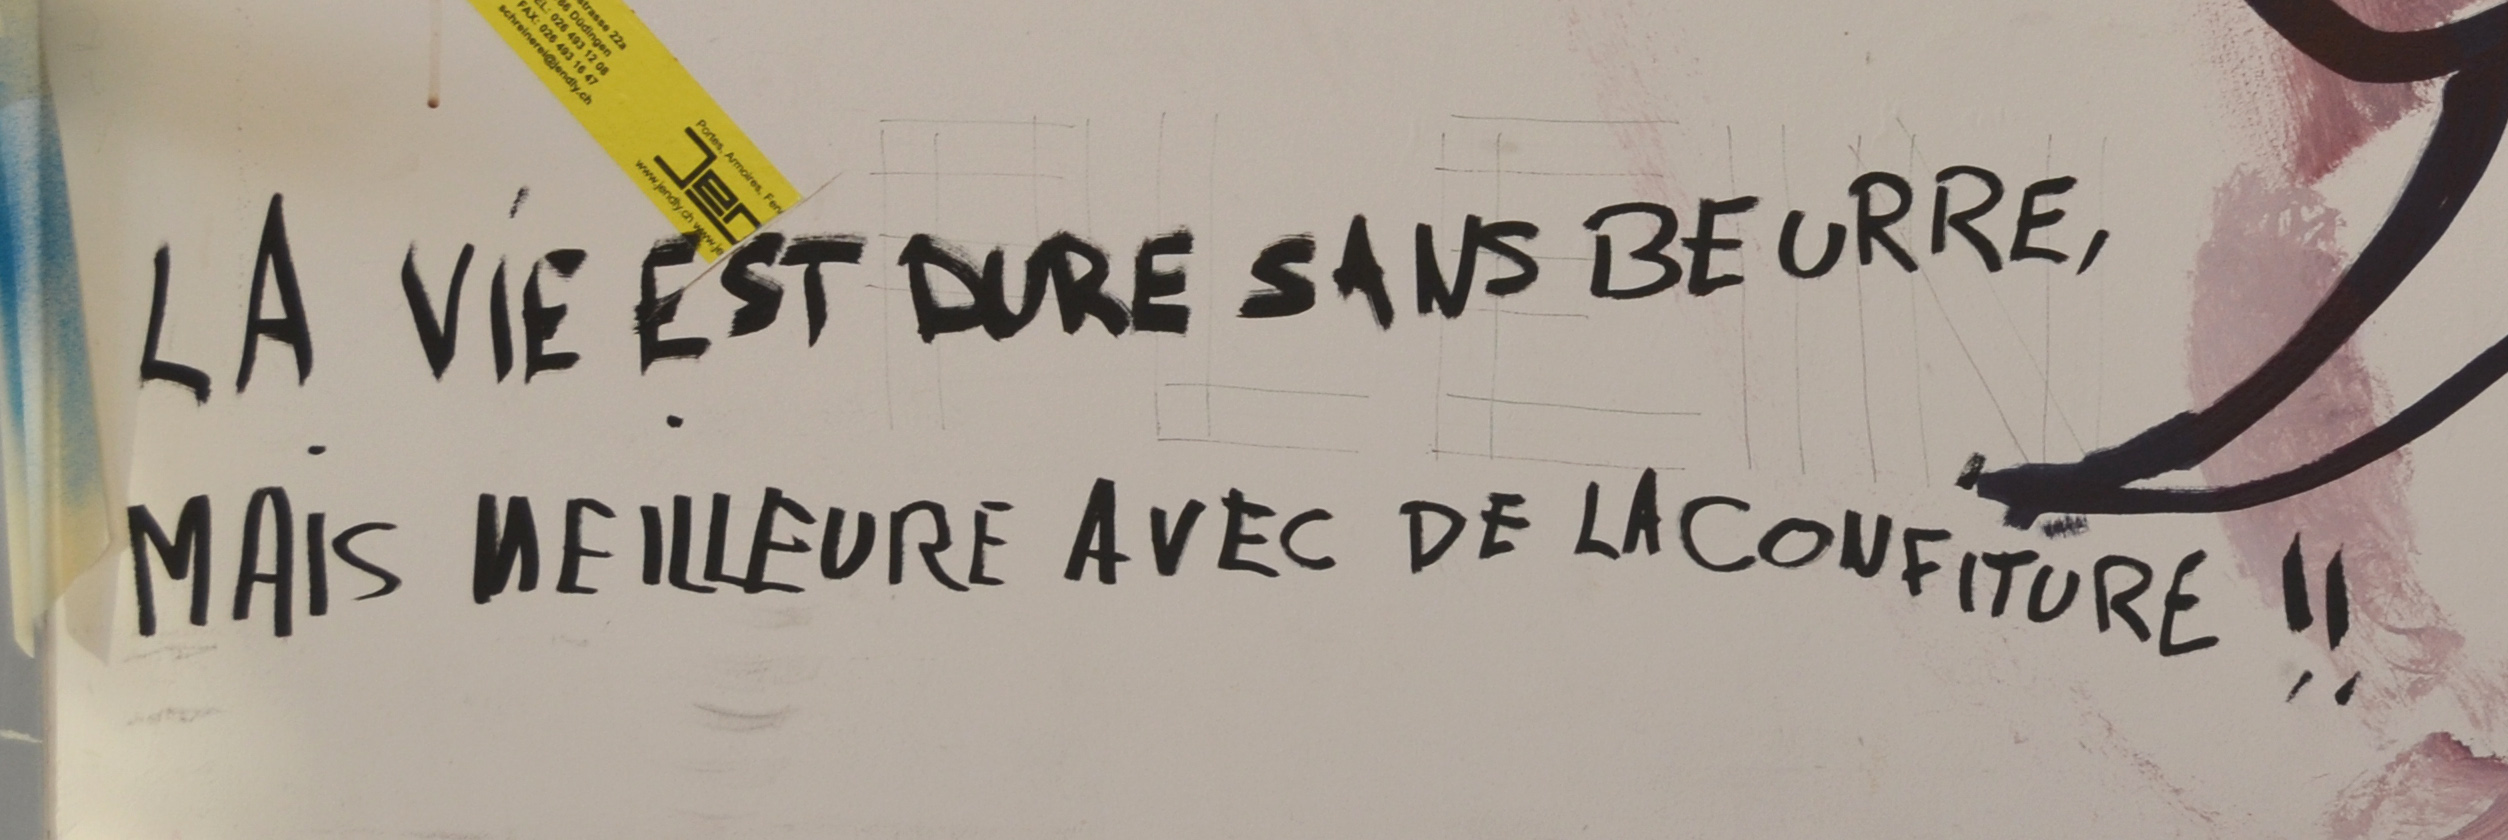 strasse 22a
66 Düdingen
TEL: 026 493 12 08
FAX: 026 493 16 47
schreinerei@jendly.ch
Portes, Armoires, Fen
Jen
www.jendly.ch www.je
LA VIE EST DURE SANS BEURRE,
MAIS MEILLEURE AVEC DE LA CONFITURE !!